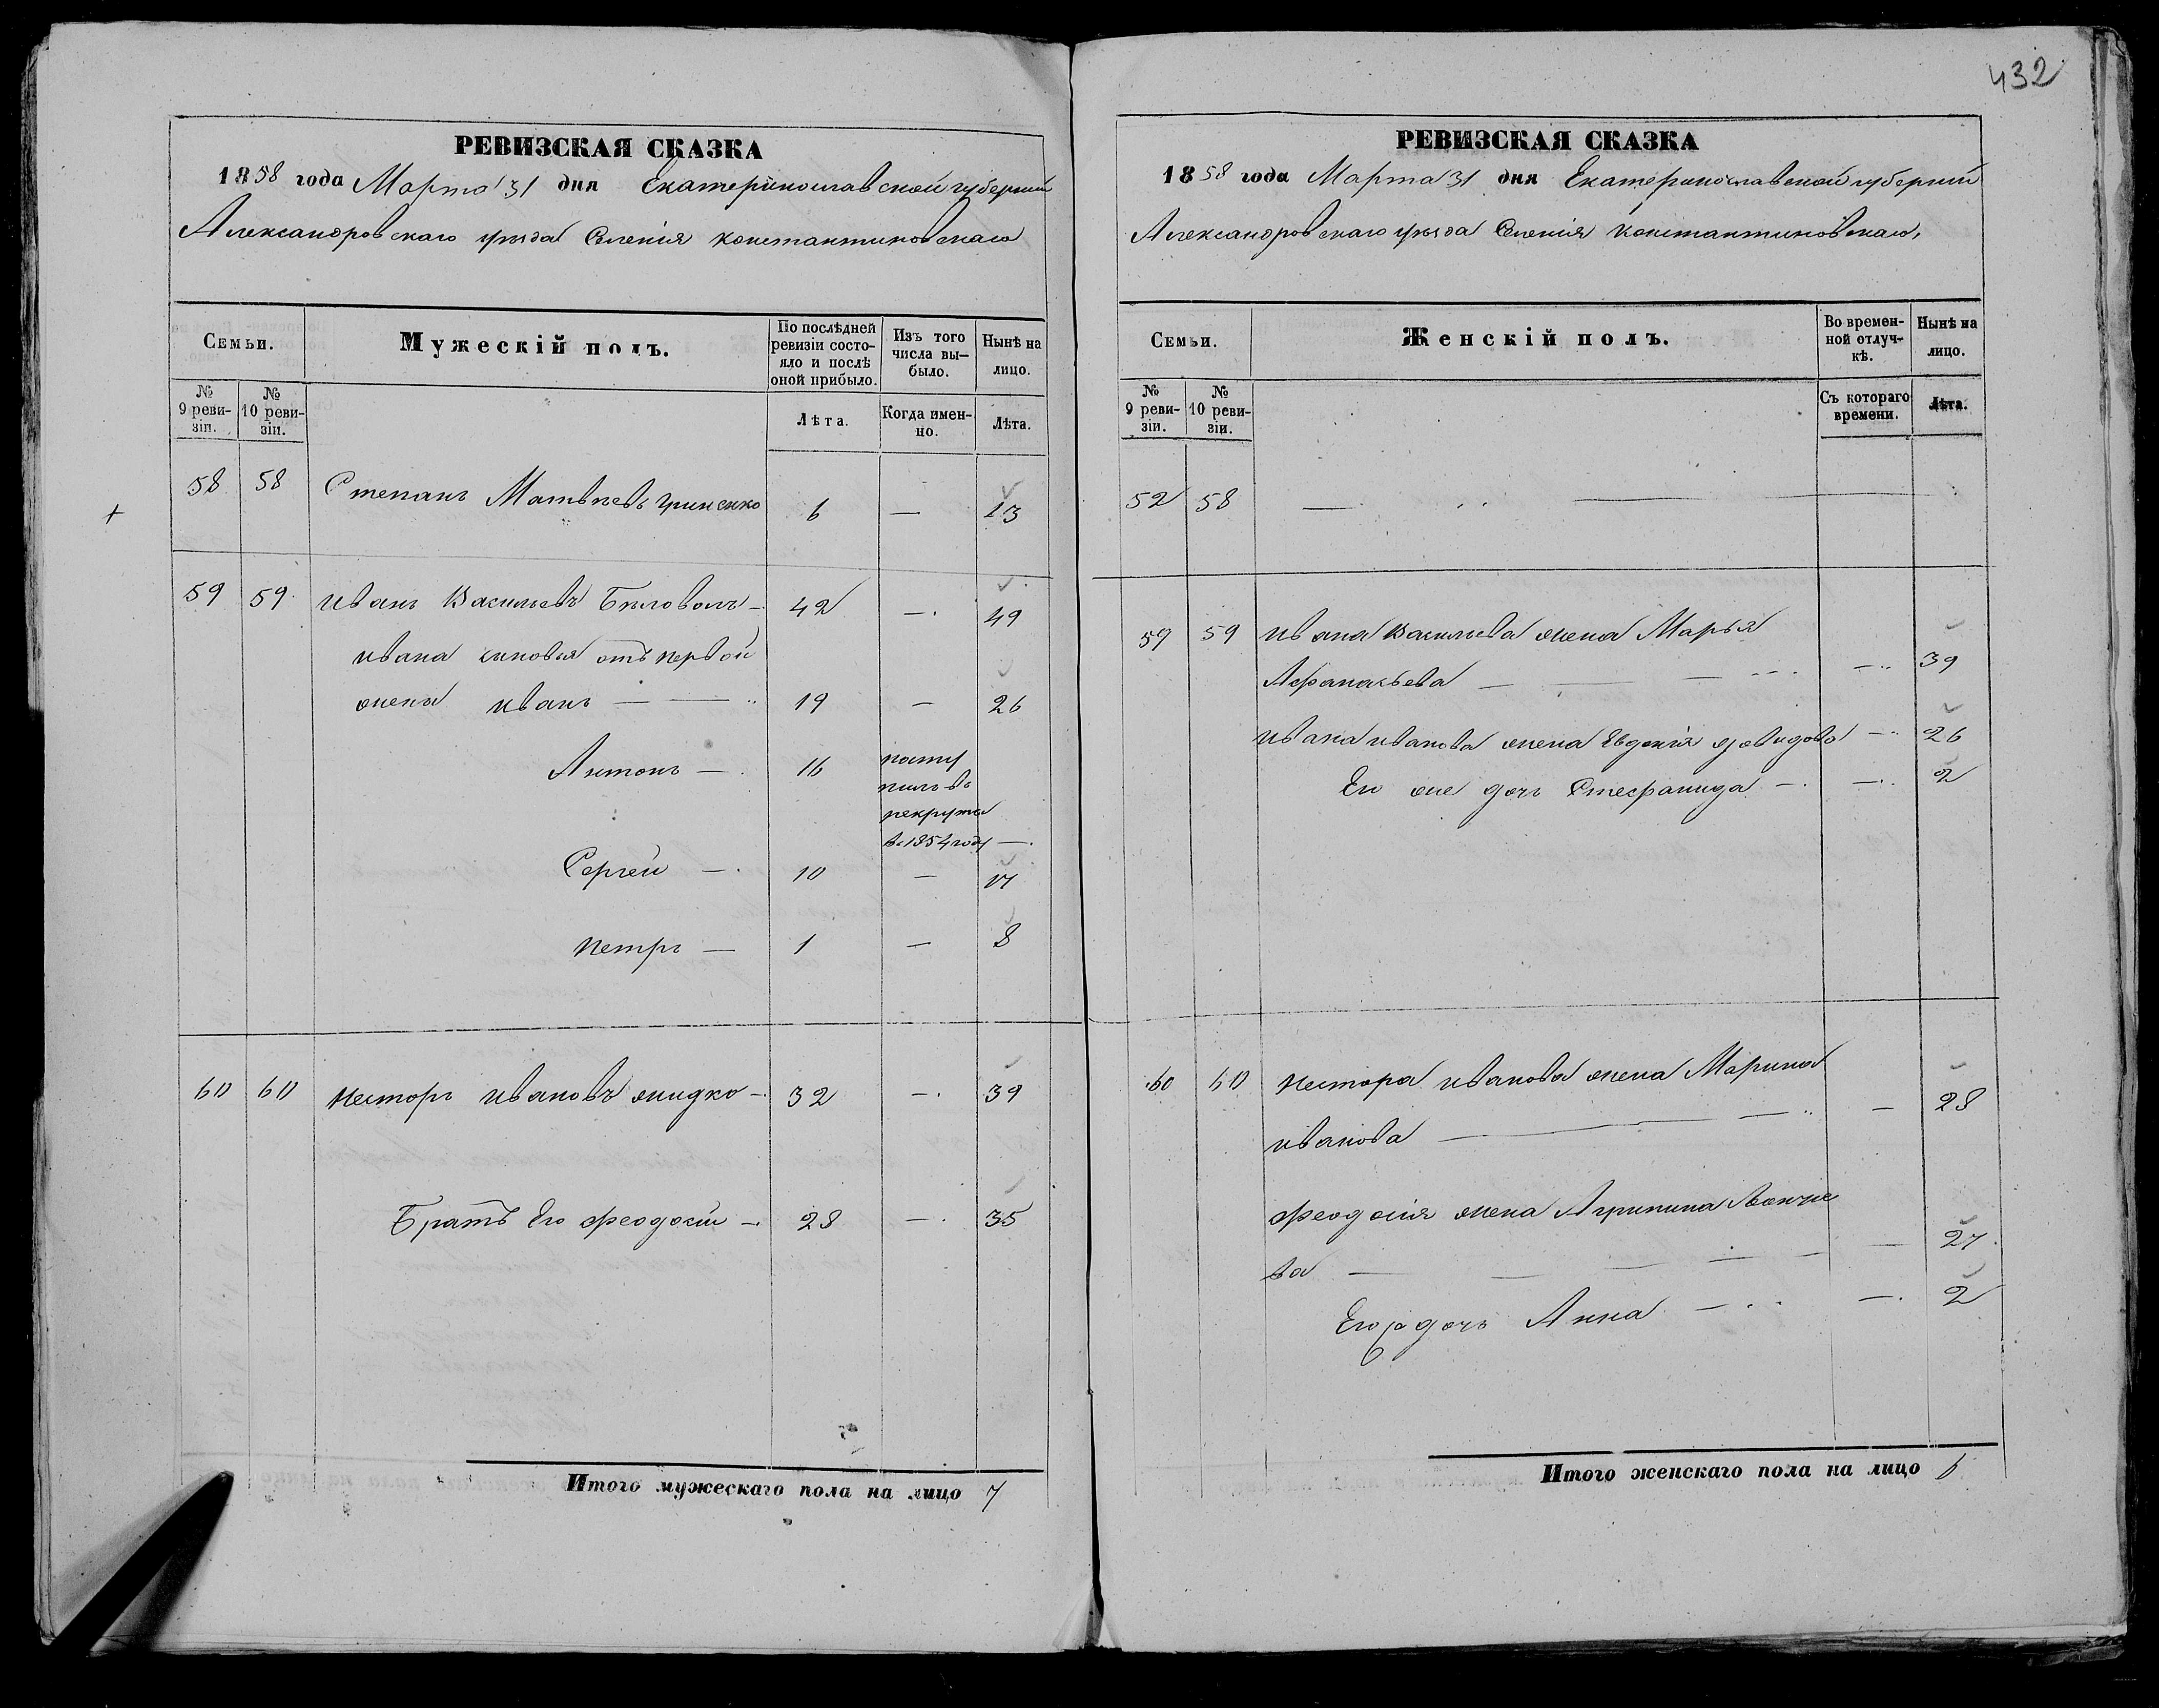 432
РЕВИЗСКАЯ СКАЗКА
1858 года Марта 31 дня Екатеринославской губернии
Александровскаго уѣзда Селенія Константиновскаго
Семьи. Мужескій полъ. По послѣдней ревизіи состояло и послѣ оной прибыло. Изъ того числа вы-было. Нынѣ на лицо.
№ 9 реви-зіи. № 10 реви-зіи. Лѣта. Когда имен-но. Лѣта.
58 58 Степанъ Матвѣевъ Гриненко 6 — 13
59 59 Иванъ Васильевъ Бѣловолъ — 42 — 49
Ивана сыновья отъ первой
жены Иванъ — — 19 — 26
Антонъ — 16 посту
пилъ въ
рекруты
въ 1854 году —
Сергей — 10 — 17
Петръ — 1 — 8
60 60 Несторъ Ивановъ Жидко — 32 — 39
Братъ Его Феодосій — 28 — 35
Итого мужескаго пола на лицо 7
РЕВИЗСКАЯ СКАЗКА
1858 года Марта 31 дня Екатеринославской губерніи
Александровскаго уѣзда Селенія Константиновскаго,
Семьи. Женскій полъ. Во времен-ной отлуч-кѣ. Нынѣ на лицо.
№ 9 реви-зіи. № 10 реви-зіи. Съ котораго времени. Лѣта.
52 58 — —
59 59 Ивана Васильева жена Марья
Афанасьева — — — — 39
Ивана Иванова жена Евдокія Давидова — 26
Его же дочь Стефанида — — 2
60 60 Нестора Иванова жена Марина
Иванова — — — 28
Феодосія жена Агрипина
ва — — — — — 27
Его дочь Анна — — 2
Итого женскаго пола на лицо 6